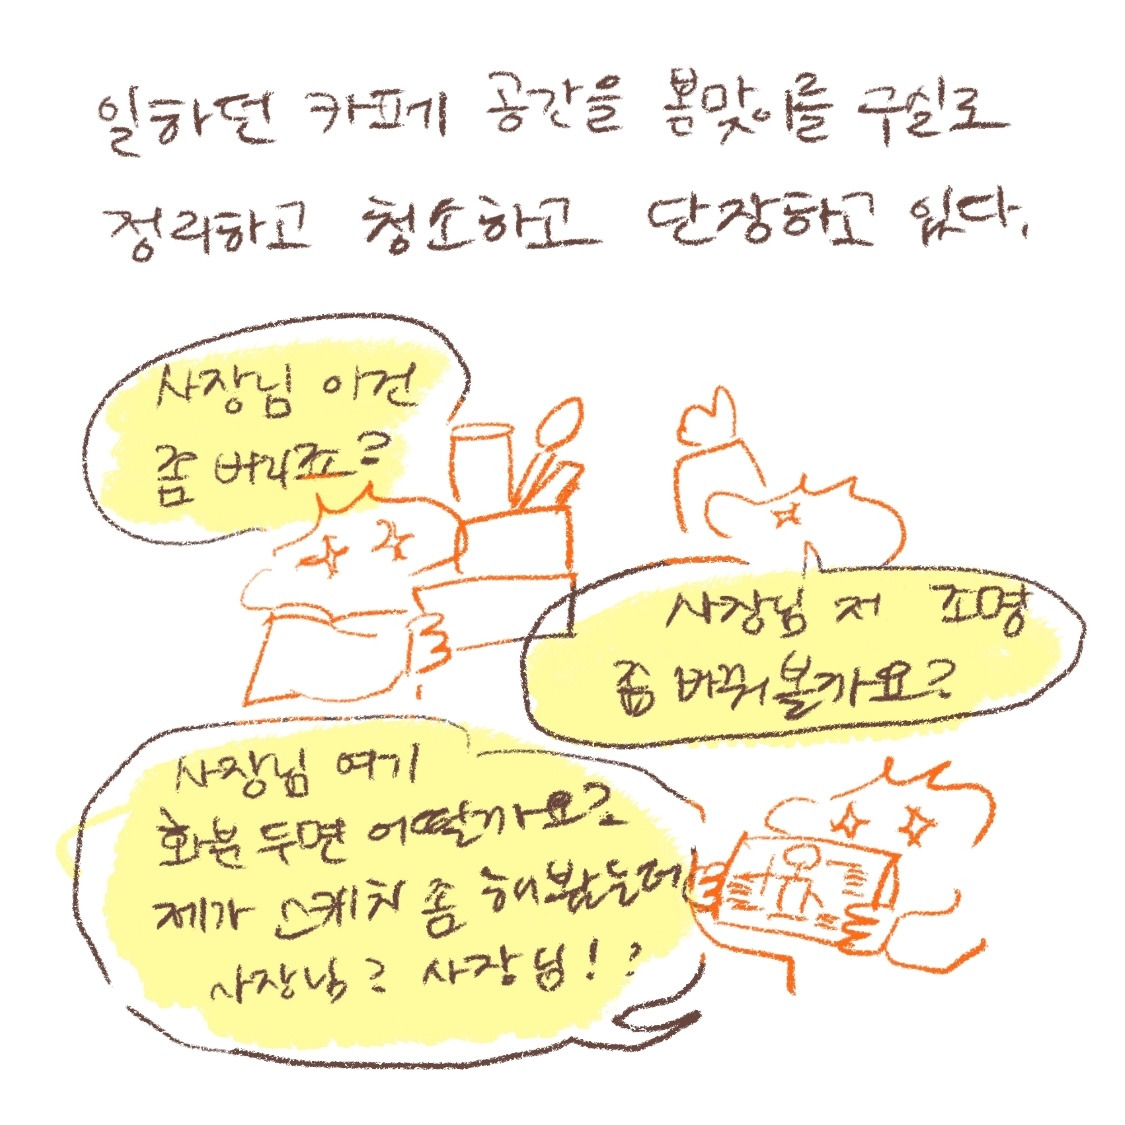 일하던 카페 공간을 봄맞이를 구실로
정리하고 청소하고 단장하고 있다.
사장님 이건
좀 버리죠?
사장님 저 조명
좀 바꿔볼까요?
사장님 여기
화분 두면 어떨까요?
제가 스케치 좀 해봤는데
사장님? 사장님!?